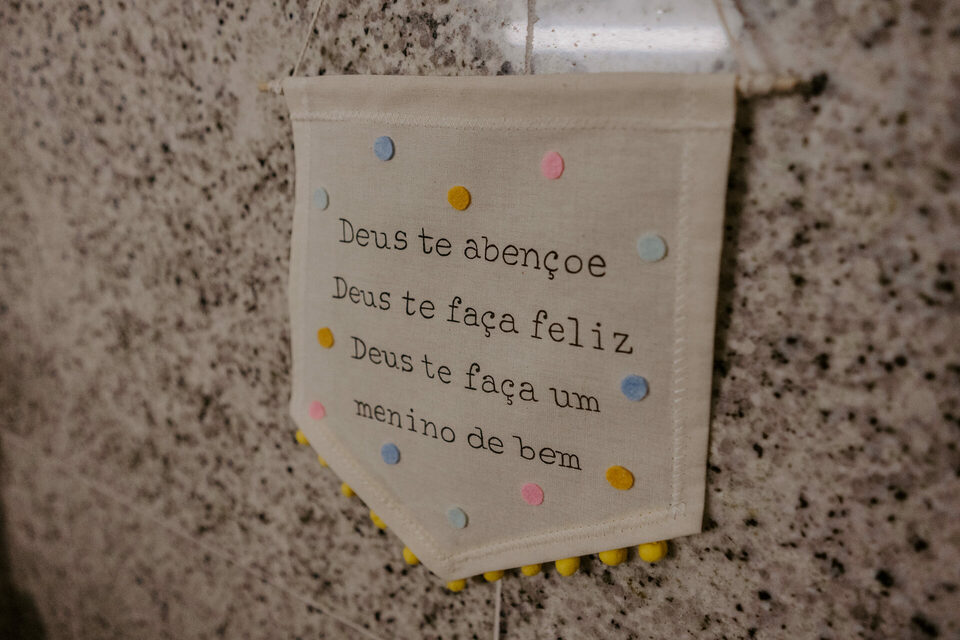 Deus te abençoe
Deus te faça feliz
Deus te faça um
menino de bem